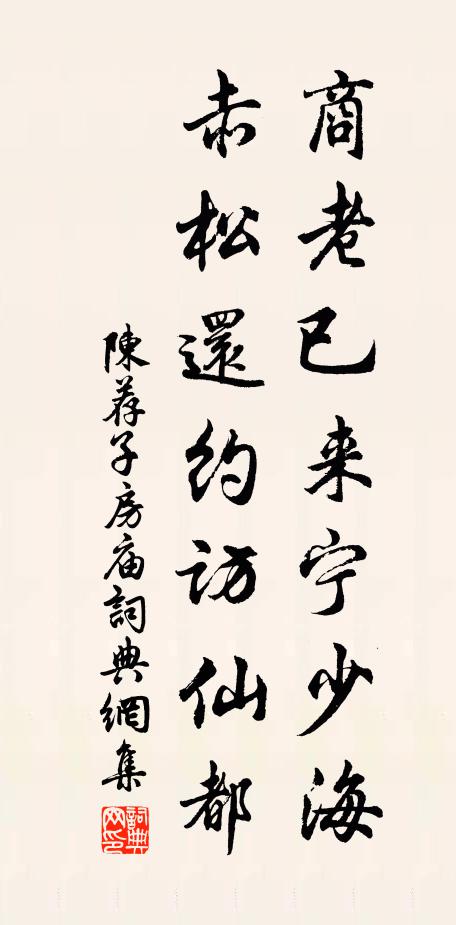 商老已来宁少海
赤松還约访仙都
陳荐子房庙詞典網集
詞典网印